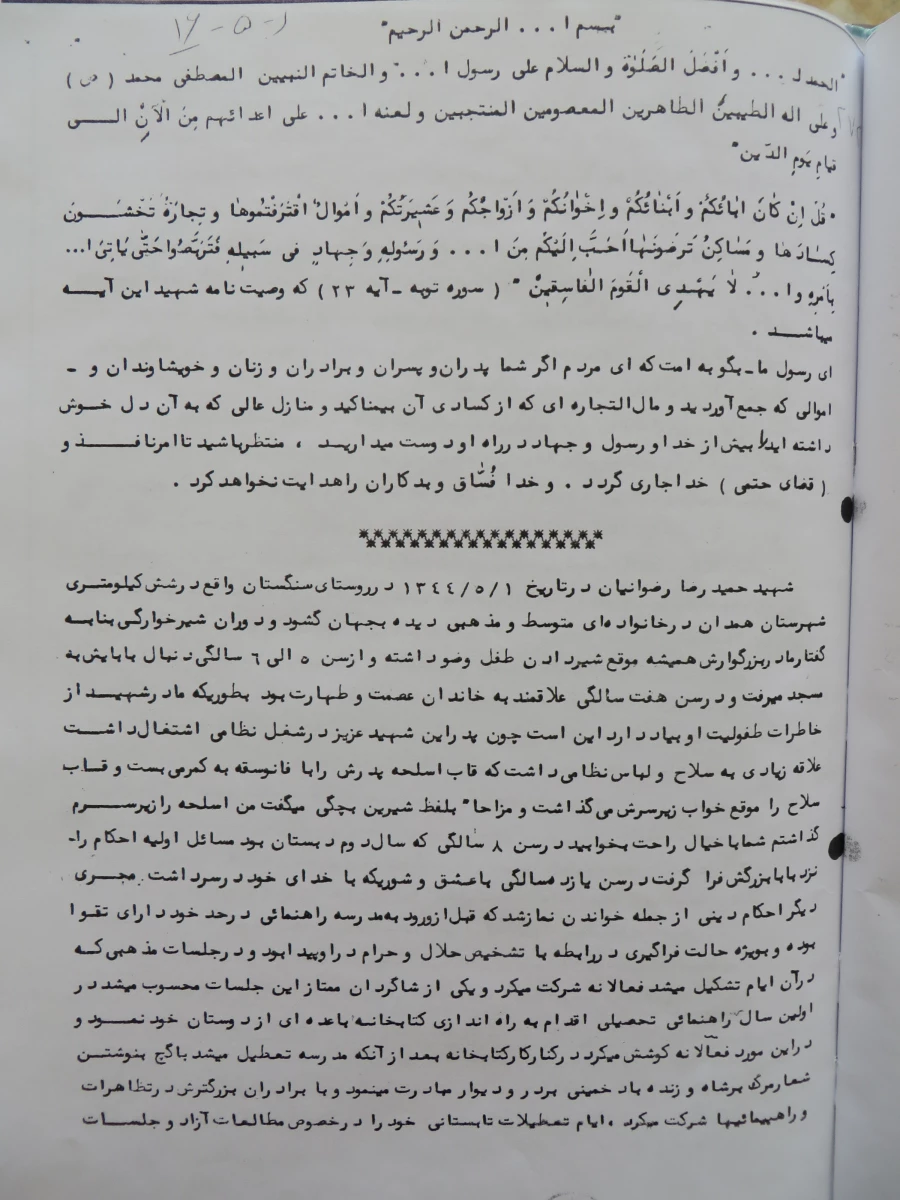 ۱۶-۵-۱
"بسم ا... الرحمن الرحیم"
"الحمدلـ... و اَفْضَلَ الصَّلَوٰة و السلام علی رسول ا... و الخاتم النبیین المصطفی محمد (ص)
و علی اله الطیبین الطاهرین المعصومین المنتجبین و لعنه ا... علی اعدائهم مِنَ الْاٰنِ الـــی
قیامِ یَومِ الدّین"
"قُلْ اِنْ کٰانَ ابٰائُکُمْ و اَبْنٰائُکُمْ و اِخْوٰانُکُمْ وَ اَزْواجُکُم وَ عَشیٖرَتُکُمْ و اَموالٌ اقْتَرَفْتُموهٰا و تِجارَةٌ تَخْشَــــون
کِسٰادَهٰا و مَسٰاکِنُ تَرضَونَهٰا اَحَبَّ اِلَیْکُمْ مِنَ ا... وَ رَسُولِهِ وَ جِهادٍ فی سَبیلِهِ فَتَرَبَّصُوا حَتّٰی یَاتِیَ ا...
بِاَمْرِهِ و ا... لاٰ یَهْدِی القَومَ الفٰاسِقیٖنْ" (سوره توبه ـ آیه ۲۳) که وصیت نامه شهید این آیـــه
میباشـــد .
ای رسول ما ـ بگو به امت که ای مردم اگر شما پدران و پسران و برادران و زنان و خویشاوندان و ـ
اموالی که جمع آوردید و مال التجاره ای که از کسادی آن بیمناکید و منازل عالی که به آن دل خـــوش
داشته اید بیش از خدا و رسول و جهاد در راه او دوست میداریـد ، منتظر باشید تا امر نافـــذ و
(قضای حتمی) خدا جاری گردد . و خدا فُسّاق و بدکاران را هدایت نخواهد کرد .
شهید حمید رضا رضوانیان در تاریخ ۱۳۴۴/۵/۱ در روستای سنگستان واقع در شش کیلومتـری
شهرستان همدان در خانواده‌ای متوسط و مذهبی دیده بجهان گشود و دوران شیرخوارگی بنابـــه
گفتار مادر بزرگوارش همیشه موقع شیر دادن طفل وضو داشته و از سن ۵ الی ۶ سالگی دنبال بابایش به
مسجد میرفت و در سن هفت سالگی علاقمند به خاندان عصمت و طهارت بود بطوریکه مادر شهیـــد از
خاطرات طفولیت او بیاد دارد این است چون پدر این شهید عزیز در شغل نظامی اشتغال داشـــت
علاقه زیادی به سلاح و لباس نظامی داشت که قاب اسلحه پدرش را با فانوسقه به کمر می بست و قــاب
سلاح را موقع خواب زیر سرش می گذاشت و مزاحا" بلفظ شیرین بچگی میگفت من اسلحه را زیر ســـرم
گذاشتم شما با خیال راحت بخوابید در سن ۸ سالگی که سال دوم دبستان بود مسائل اولیه احکام را ـ
نزد بابا بزرگش فرا گرفت در سن یازده سالگی با عشق و شوریکه با خدای خود در سر داشت مجـــری
دیگر احکام دینی از جمله خواندن نماز شد که قبل از ورود به مدرسه راهنمائی در حد خود دارای تقـوا
بوده و بویژه حالت فراگیری در رابطه با تشخیص حلال و حرام در او پیدا بود و در جلسات مذهبی کـه
در آن ایام تشکیل میشد فعالانه شرکت میکرد و یکی از شاگردان ممتاز این جلسات محسوب میشد در
اولین سال راهنمائی تحصیلی اقدام به راه اندازی کتابخانـه با عده ای از دوستان خود نمـــود و
در این مورد فعالانه کوشش میکرد در کنار کار کتابخانه بعد از آنکه مدرسه تعطیل میشد با گچ بنوشتـــن
شعار مرگ بر شاه و زنده باد خمینی بر در و دیوار مبادرت مینمود و با برادران بزرگترش در تظاهرات
و راهپیمائیها شرکت میکرد ، ایام تعطیلات تابستانی خود را در خصوص مطالعات آزاد و جلســـات